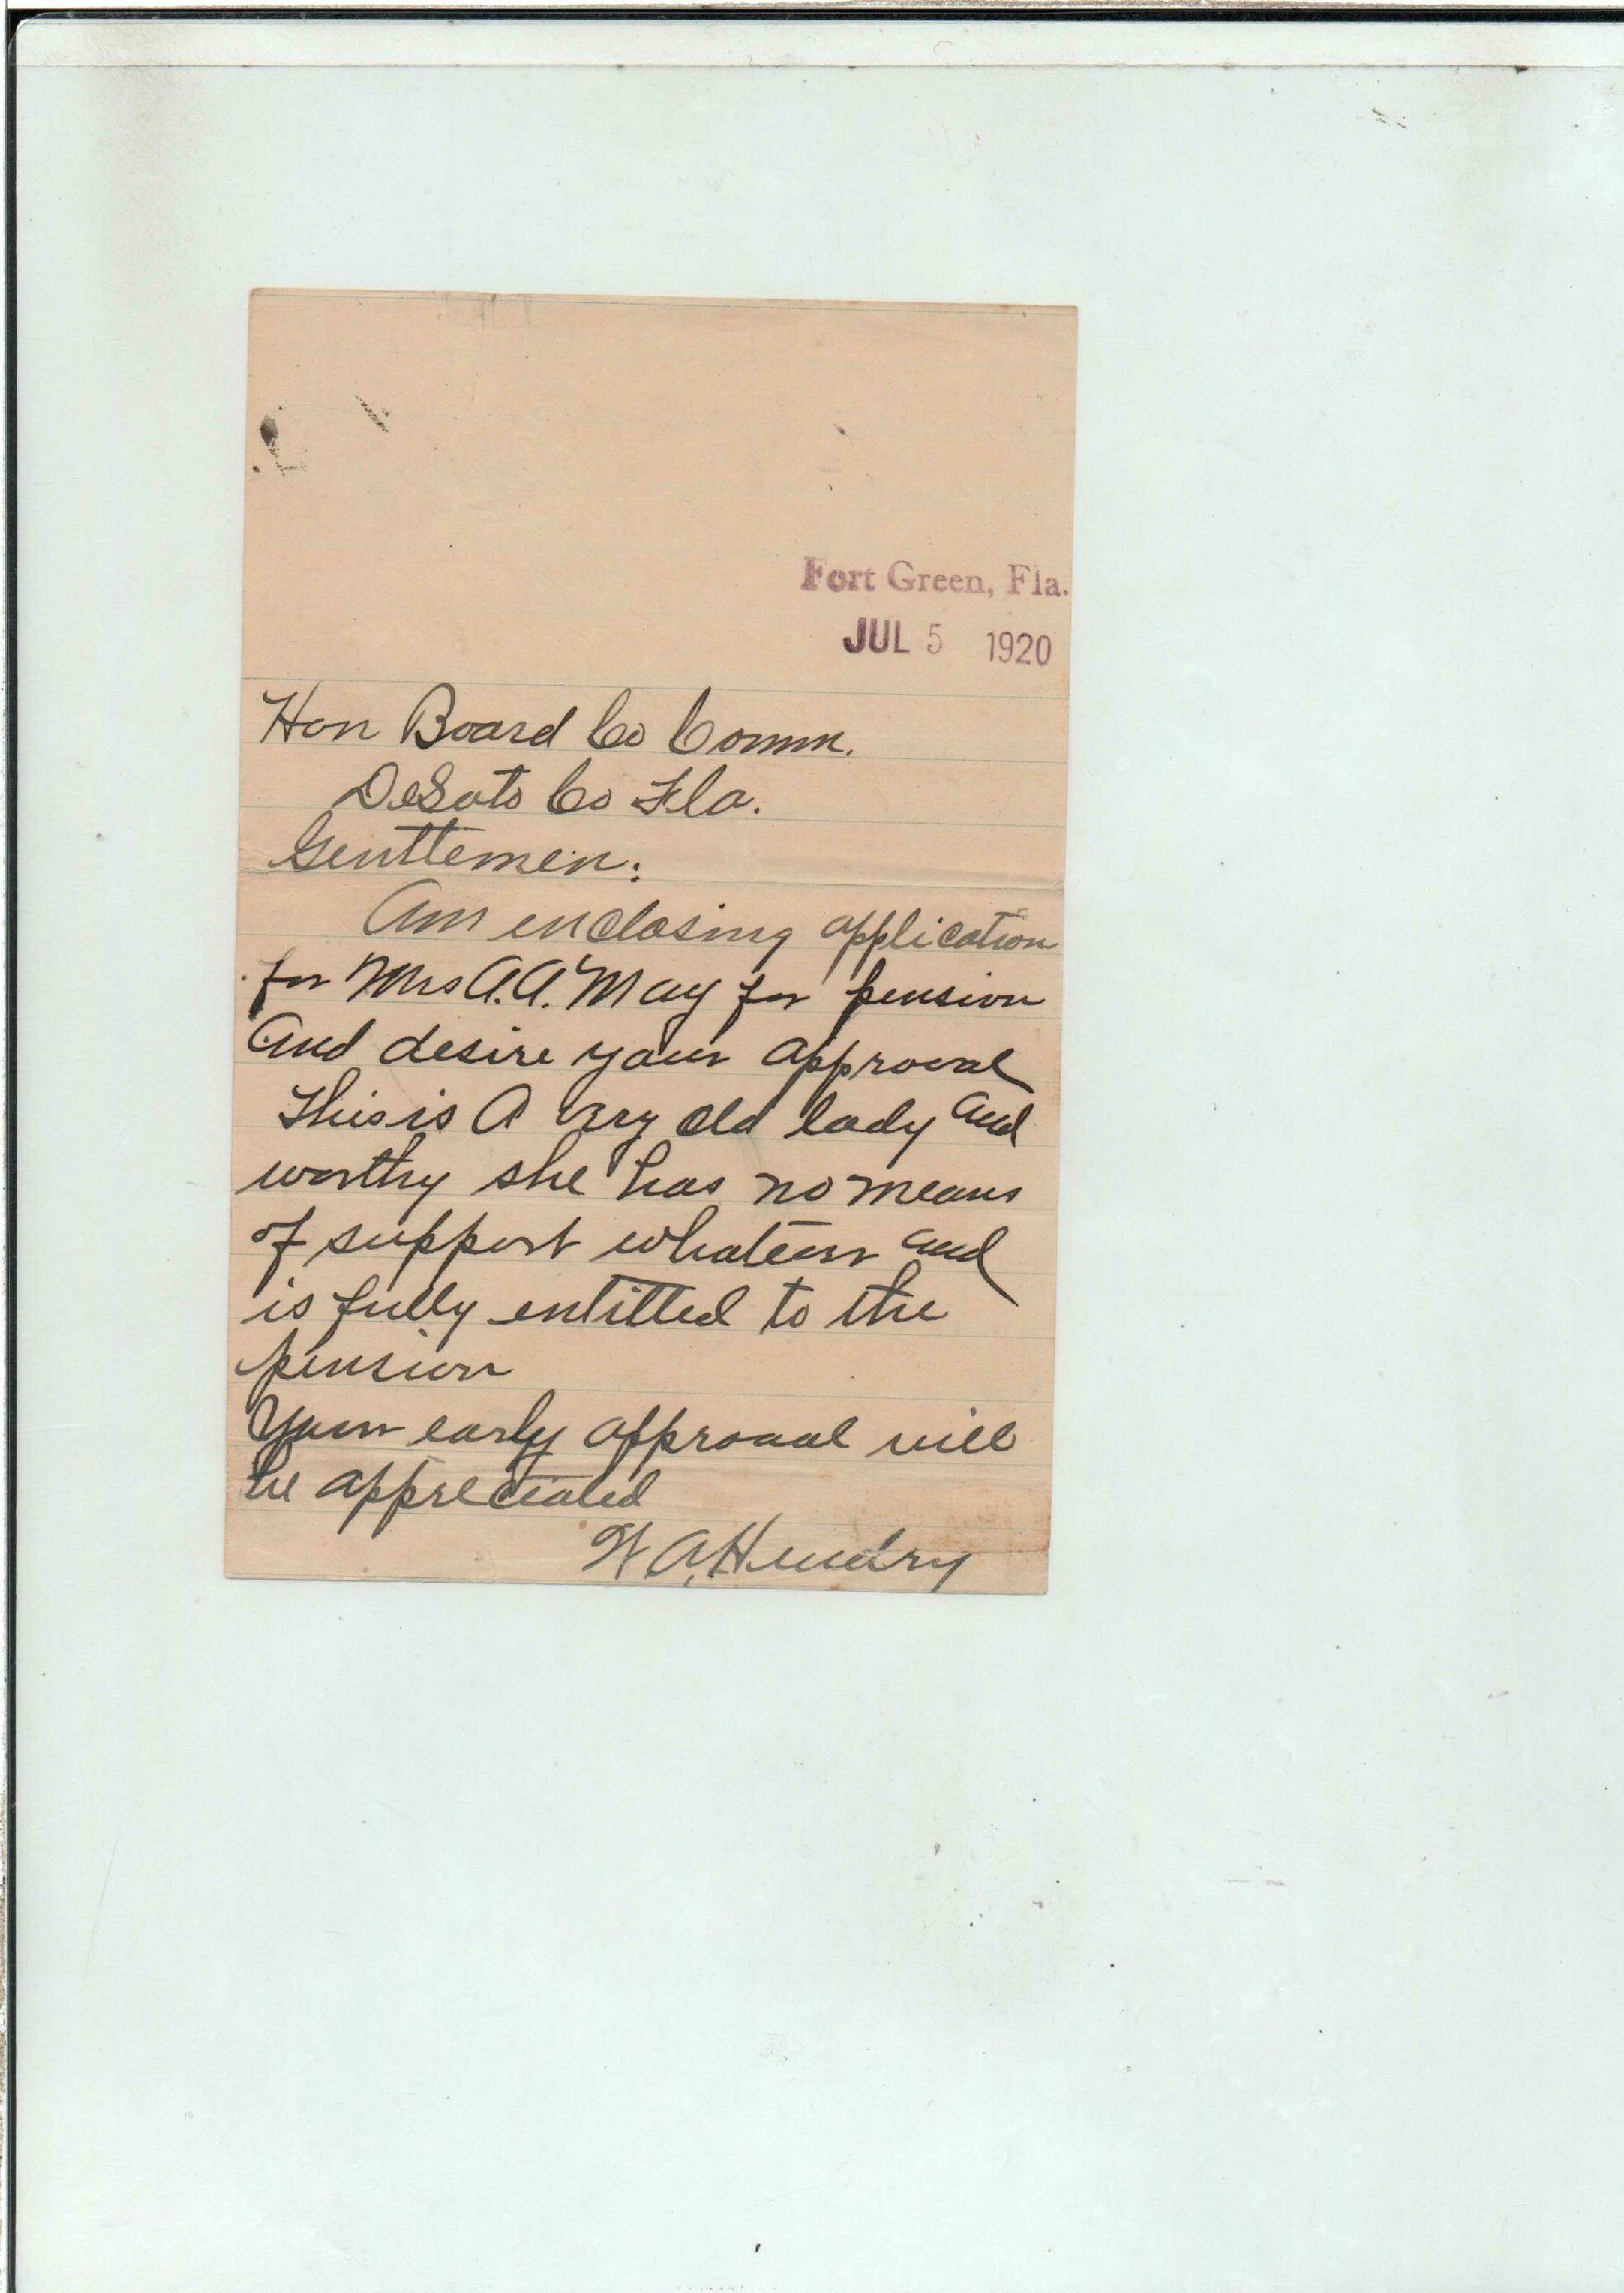 Fort Green, Fla.
JUL 5 1920
Hon Board Co Comm.
DeSoto Co Fla.
Genttemen:
Am enclosing application
for Mrs A.A. May for pension
And desire your approval
This is A very old lady and
worthy she has no means
of support whatever and
is fully entitted to the
pension
Your early approval will
be appreciated
W A. Hendry